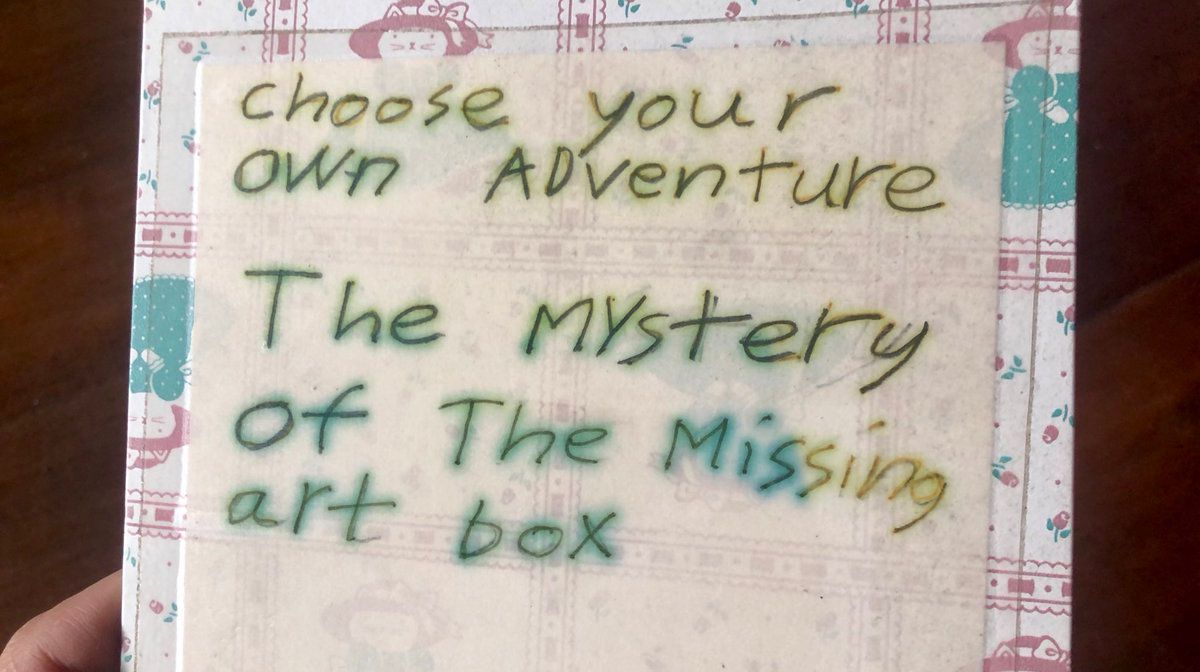 choose your
own ADventure
The mystery
of The Missing
art box